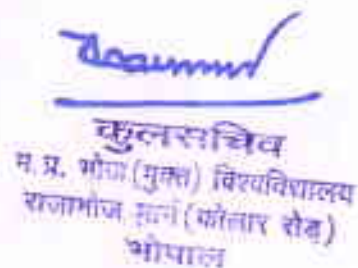 कुलसचिव
म. प्र. भोज (मुक्त) विश्वविद्यालय
राजाभोज मार्ग (कोलार रोड)
भोपाल